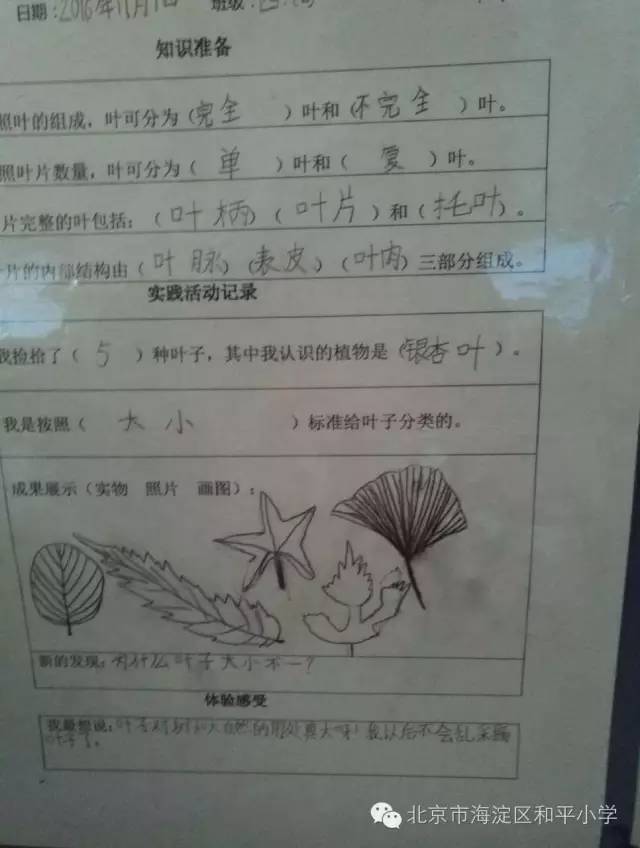 日期：2016年11月1日 班级：
知识准备
照叶的组成，叶可分为（完全）叶和（不完全）叶。
照叶片数量，叶可分为（单）叶和（复）叶。
片完整的叶包括：（叶柄）（叶片）和（托叶）。
片的内部结构由（叶脉）（表皮）（叶肉）三部分组成。
实践活动记录
我捡拾了（5）种叶子，其中我认识的植物是（银杏叶）。
我是按照（大小）标准给叶子分类的。
成果展示（实物 照片 画图）：
新的发现：为什么叶子大小不一？
体验感受
我最想说：叶子对树和大自然的用处真大呀！我以后不会乱采踏
叶子了。
北京市海淀区和平小学